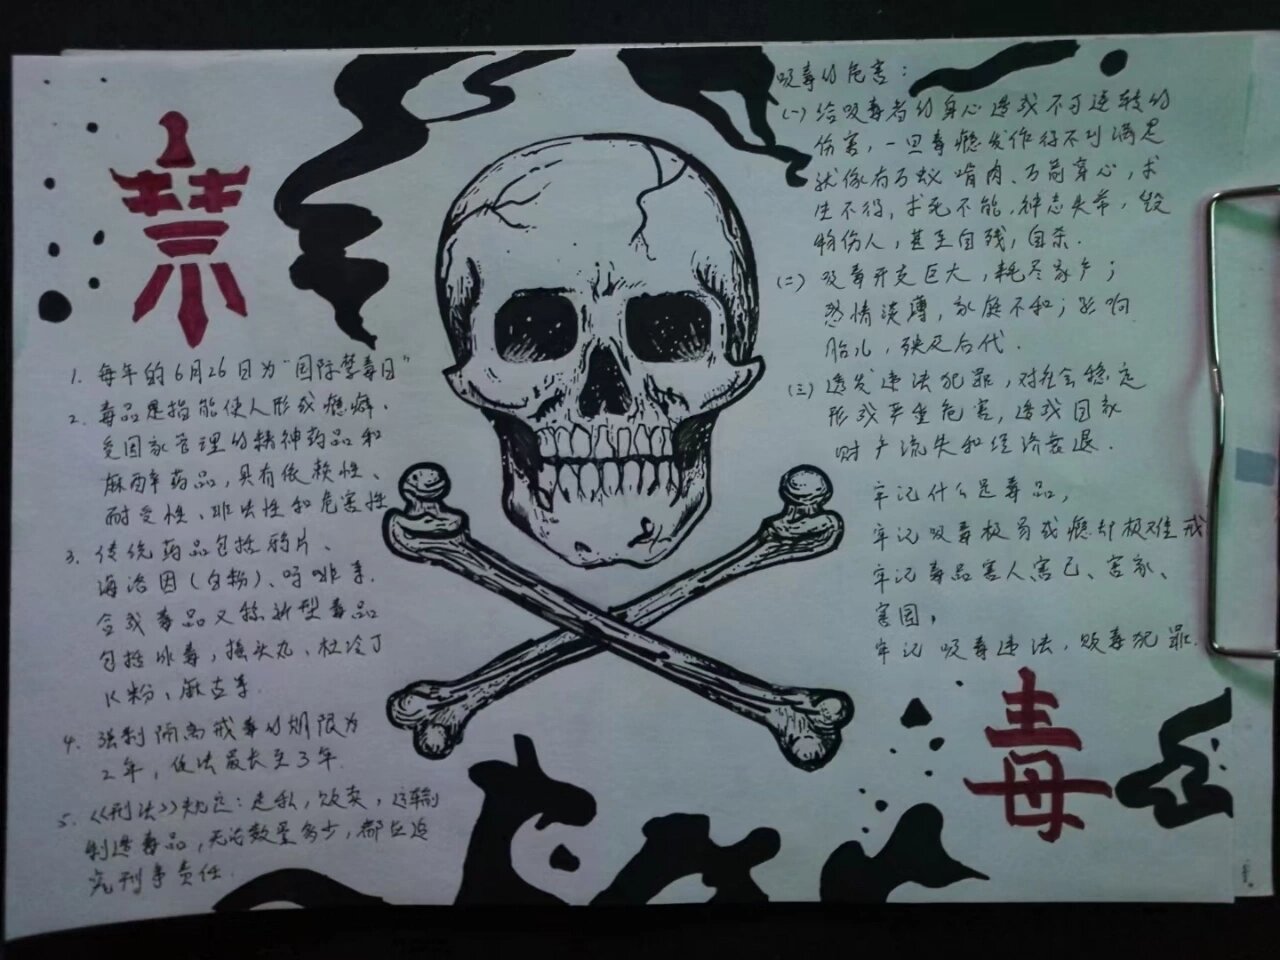 禁
1. 每年的6月26日为“国际禁毒日”
2. 毒品是指能使人形成瘾癖、
受国家管理的精神药品和
麻醉药品,具有依赖性、
耐受性、非法性和危害性
3. 传统药品包括鸦片、
海洛因(白粉)、吗啡等.
合成毒品又称新型毒品
包括冰毒,摇头丸、杜冷丁
K粉、麻古等.
4. 强制隔离戒毒的期限为
2年,依法最长至3年.
5. 《刑法》规定:走私,贩卖,运输
制造毒品,无论数量多少,都应追
究刑事责任.
吸毒的危害:
(一) 给吸毒者的身心造成不可逆转的
伤害,一旦毒瘾发作得不到满足
就像有万蚁啃肉、万箭穿心,求
生不得,求死不能,神志失常,毁
物伤人,甚至自残,自杀.
(二) 吸毒开支巨大,耗尽家产;
感情淡薄,家庭不和;影响
胎儿,殃及后代.
(三) 诱发违法犯罪,对社会稳定
形成严重危害,造成国家
财产流失和经济衰退.
牢记什么是毒品,
牢记吸毒极易成瘾却极难戒
牢记毒品害人害己、害家、
害国,
牢记吸毒违法,贩毒犯罪.
毒